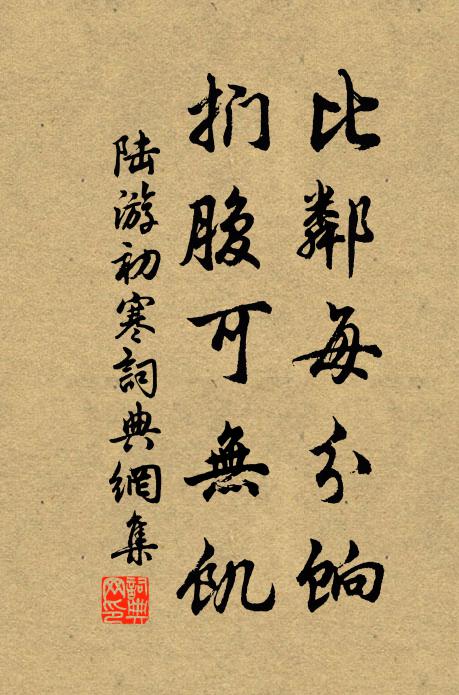 比鄰每分餉
捫腹可無飢
陸游初寒詞典網集
詞典网印